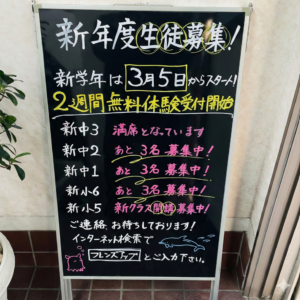 新年度生徒募集!
新学年は3月5日からスタート!
2週間無料体験受付開始
新中3 満席となっています
新中2 あと3名募集中!
新中1 あと3名募集中!
新小6 あと3名募集中!
新小5 新クラス開講募集中!
ご連絡、お待ちしております!
インターネット検索で
フレンズアップとご入力下さい。